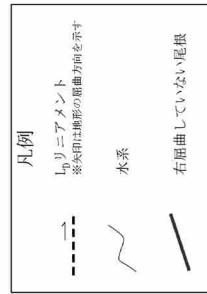 凡例
LDリニアメント
※矢印は地形の屈曲方向を示す
水系
右屈曲していない尾根